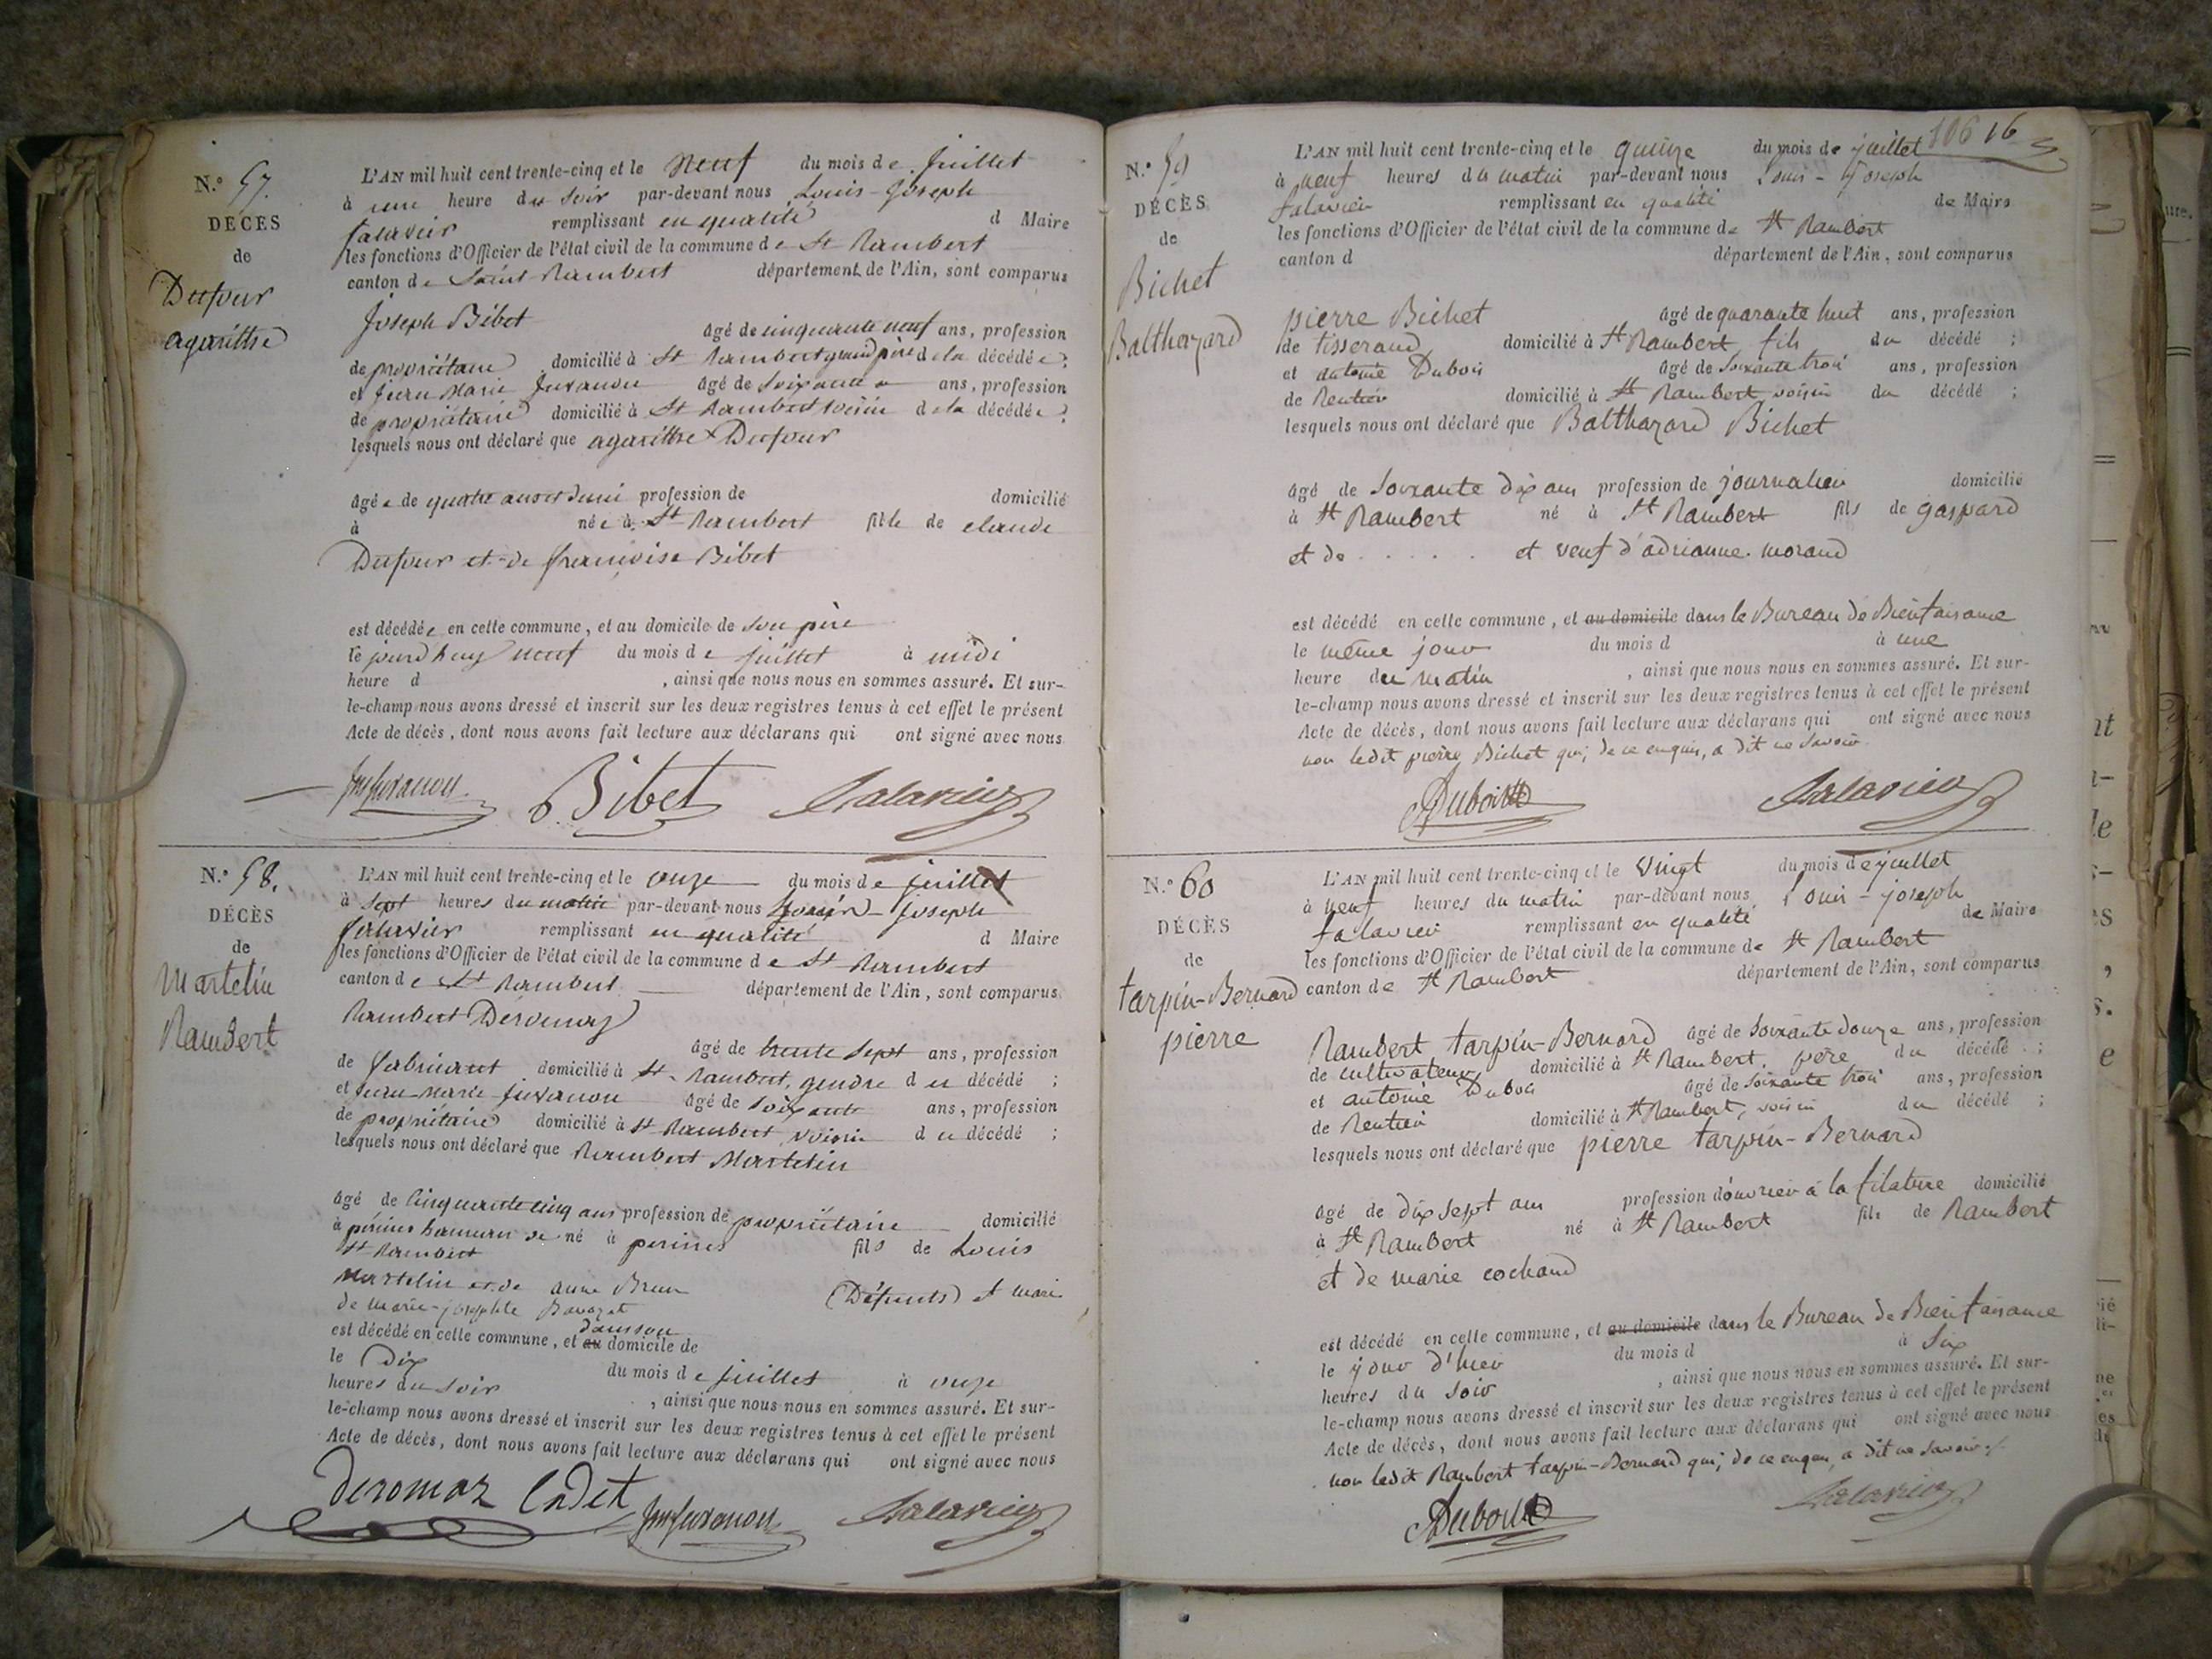 N.º 57.
DÉCÈS
de
Dufour
agarithe
L'AN mil huit cent trente-cinq et le neuf du mois de juillet
à une heure du soir par-devant nous Louis-Joseph
Salavier remplissant en qualité d Maire
les fonctions d'Officier de l'état civil de la commune de St Rambert
canton de Saint Rambert département de l'Ain, sont comparus
Joseph Bibet
âgé de cinquante neuf ans, profession
de propriétaire domicilié à St Rambert grand père de la décédée;
et Jean Marie Juvanon âgé de soixante ans, profession
de propriétaire domicilié à St Rambert voisin de la décédée;
lesquels nous ont déclaré que agarithe Dufour
âgée de quatre ans et demi profession de domicilié
à née à St Rambert fille de claude
Dufour et de françoise Bibet
est décédée en cette commune, et au domicile de son père
le jourd'huy neuf du mois de juillet à midi
heure d , ainsi que nous nous en sommes assuré. Et sur-
le-champ nous avons dressé et inscrit sur les deux registres tenus à cet effet le présent
Acte de décès, dont nous avons fait lecture aux déclarans qui ont signé avec nous
Jm Juvanon Bibet Salavier
N.º 58.
DÉCÈS
de
Martelin
Rambert
L'AN mil huit cent trente-cinq et le onze du mois de juillet
à sept heures du matin par-devant nous Louis-Joseph
Salavier remplissant en qualité d Maire
les fonctions d'Officier de l'état civil de la commune de St Rambert
canton de St Rambert département de l'Ain, sont comparus
Rambert
âgé de trente sept ans, profession
de fabricant domicilié à St Rambert, gendre du décédé;
et Jean-Marie Juvanon âgé de soixante ans, profession
de propriétaire domicilié à St Rambert voisin du décédé;
lesquels nous ont déclaré que Rambert Martelin
âgé de cinquante cinq ans profession de propriétaire domicilié
à hameau de né à fils de Louis
St Rambert
Martelin et de anne Brun (Défunts) et mari
de marie-josephte
dans son
est décédé en cette commune, et au domicile de
le Dix du mois de juillet à onze
heures du soir , ainsi que nous nous en sommes assuré. Et sur-
le-champ nous avons dressé et inscrit sur les deux registres tenus à cet effet le présent
Acte de décès, dont nous avons fait lecture aux déclarans qui ont signé avec nous
deromaz Cadet Jm Juvanon Salavier
106 16
N.º 59
DÉCÈS
de
Bichet
Balthazard
L'AN mil huit cent trente-cinq et le quinze du mois de juillet
à neuf heures du matin par-devant nous Louis-Joseph
Salavier remplissant en qualité de Maire
les fonctions d'Officier de l'état civil de la commune de St Rambert
canton d département de l'Ain, sont comparus
pierre Bichet âgé de quarante huit ans, profession
de tisserand domicilié à St Rambert fils du décédé;
et antoine Dubois âgé de soixante trois ans, profession
de Rentier domicilié à St Rambert voisin du décédé;
lesquels nous ont déclaré que Balthazard Bichet
âgé de soixante dix ans profession de journalier domicilié
à St Rambert né à St Rambert fils de gaspard
et de . . . . . et veuf d'adrianne morand
est décédé en cette commune, et au domicile dans le Bureau de Bienfaisance
le même jour du mois d à une
heure du matin , ainsi que nous nous en sommes assuré. Et sur-
le-champ nous avons dressé et inscrit sur les deux registres tenus à cet effet le présent
Acte de décès, dont nous avons fait lecture aux déclarans qui ont signé avec nous
non ledit pierre Bichet qui, de ce enquis, a dit ne savoir.
Dubois Salavier
N.º 60
DÉCÈS
de
tarpin-Bernard
pierre
L'AN mil huit cent trente-cinq et le vingt du mois de juillet
à neuf heures du matin par-devant nous Louis-joseph
Salavier remplissant en qualité de Maire
les fonctions d'Officier de l'état civil de la commune de St Rambert
canton de St Rambert département de l'Ain, sont comparus
Rambert tarpin-Bernard âgé de soixante douze ans, profession
de cultivateur domicilié à St Rambert, père du décédé;
et antoine Dubois âgé de soixante trois ans, profession
de Rentier domicilié à St Rambert, voisin du décédé;
lesquels nous ont déclaré que pierre tarpin-Bernard
âgé de dix sept ans profession d'ouvrier à la filature domicilié
à St Rambert né à St Rambert fils de Rambert
et de marie cochand
est décédé en cette commune, et au domicile dans le Bureau de Bienfaisance
le jour d'hier du mois d à six
heures du soir , ainsi que nous nous en sommes assuré. Et sur-
le-champ nous avons dressé et inscrit sur les deux registres tenus à cet effet le présent
Acte de décès, dont nous avons fait lecture aux déclarans qui ont signé avec nous
non ledit Rambert tarpin-Bernard qui, de ce enquis, a dit ne savoir.
Dubois Salavier